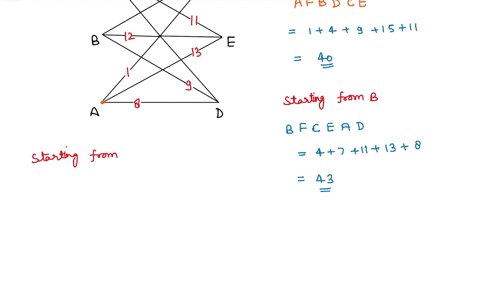 11
B
12
E
13
1
9
A
8
D
Starting from
A F B D C E
= 1 + 4 + 9 + 15 + 11
= 40
Starting from B
B F C E A D
= 4 + 7 + 11 + 13 + 8
= 43